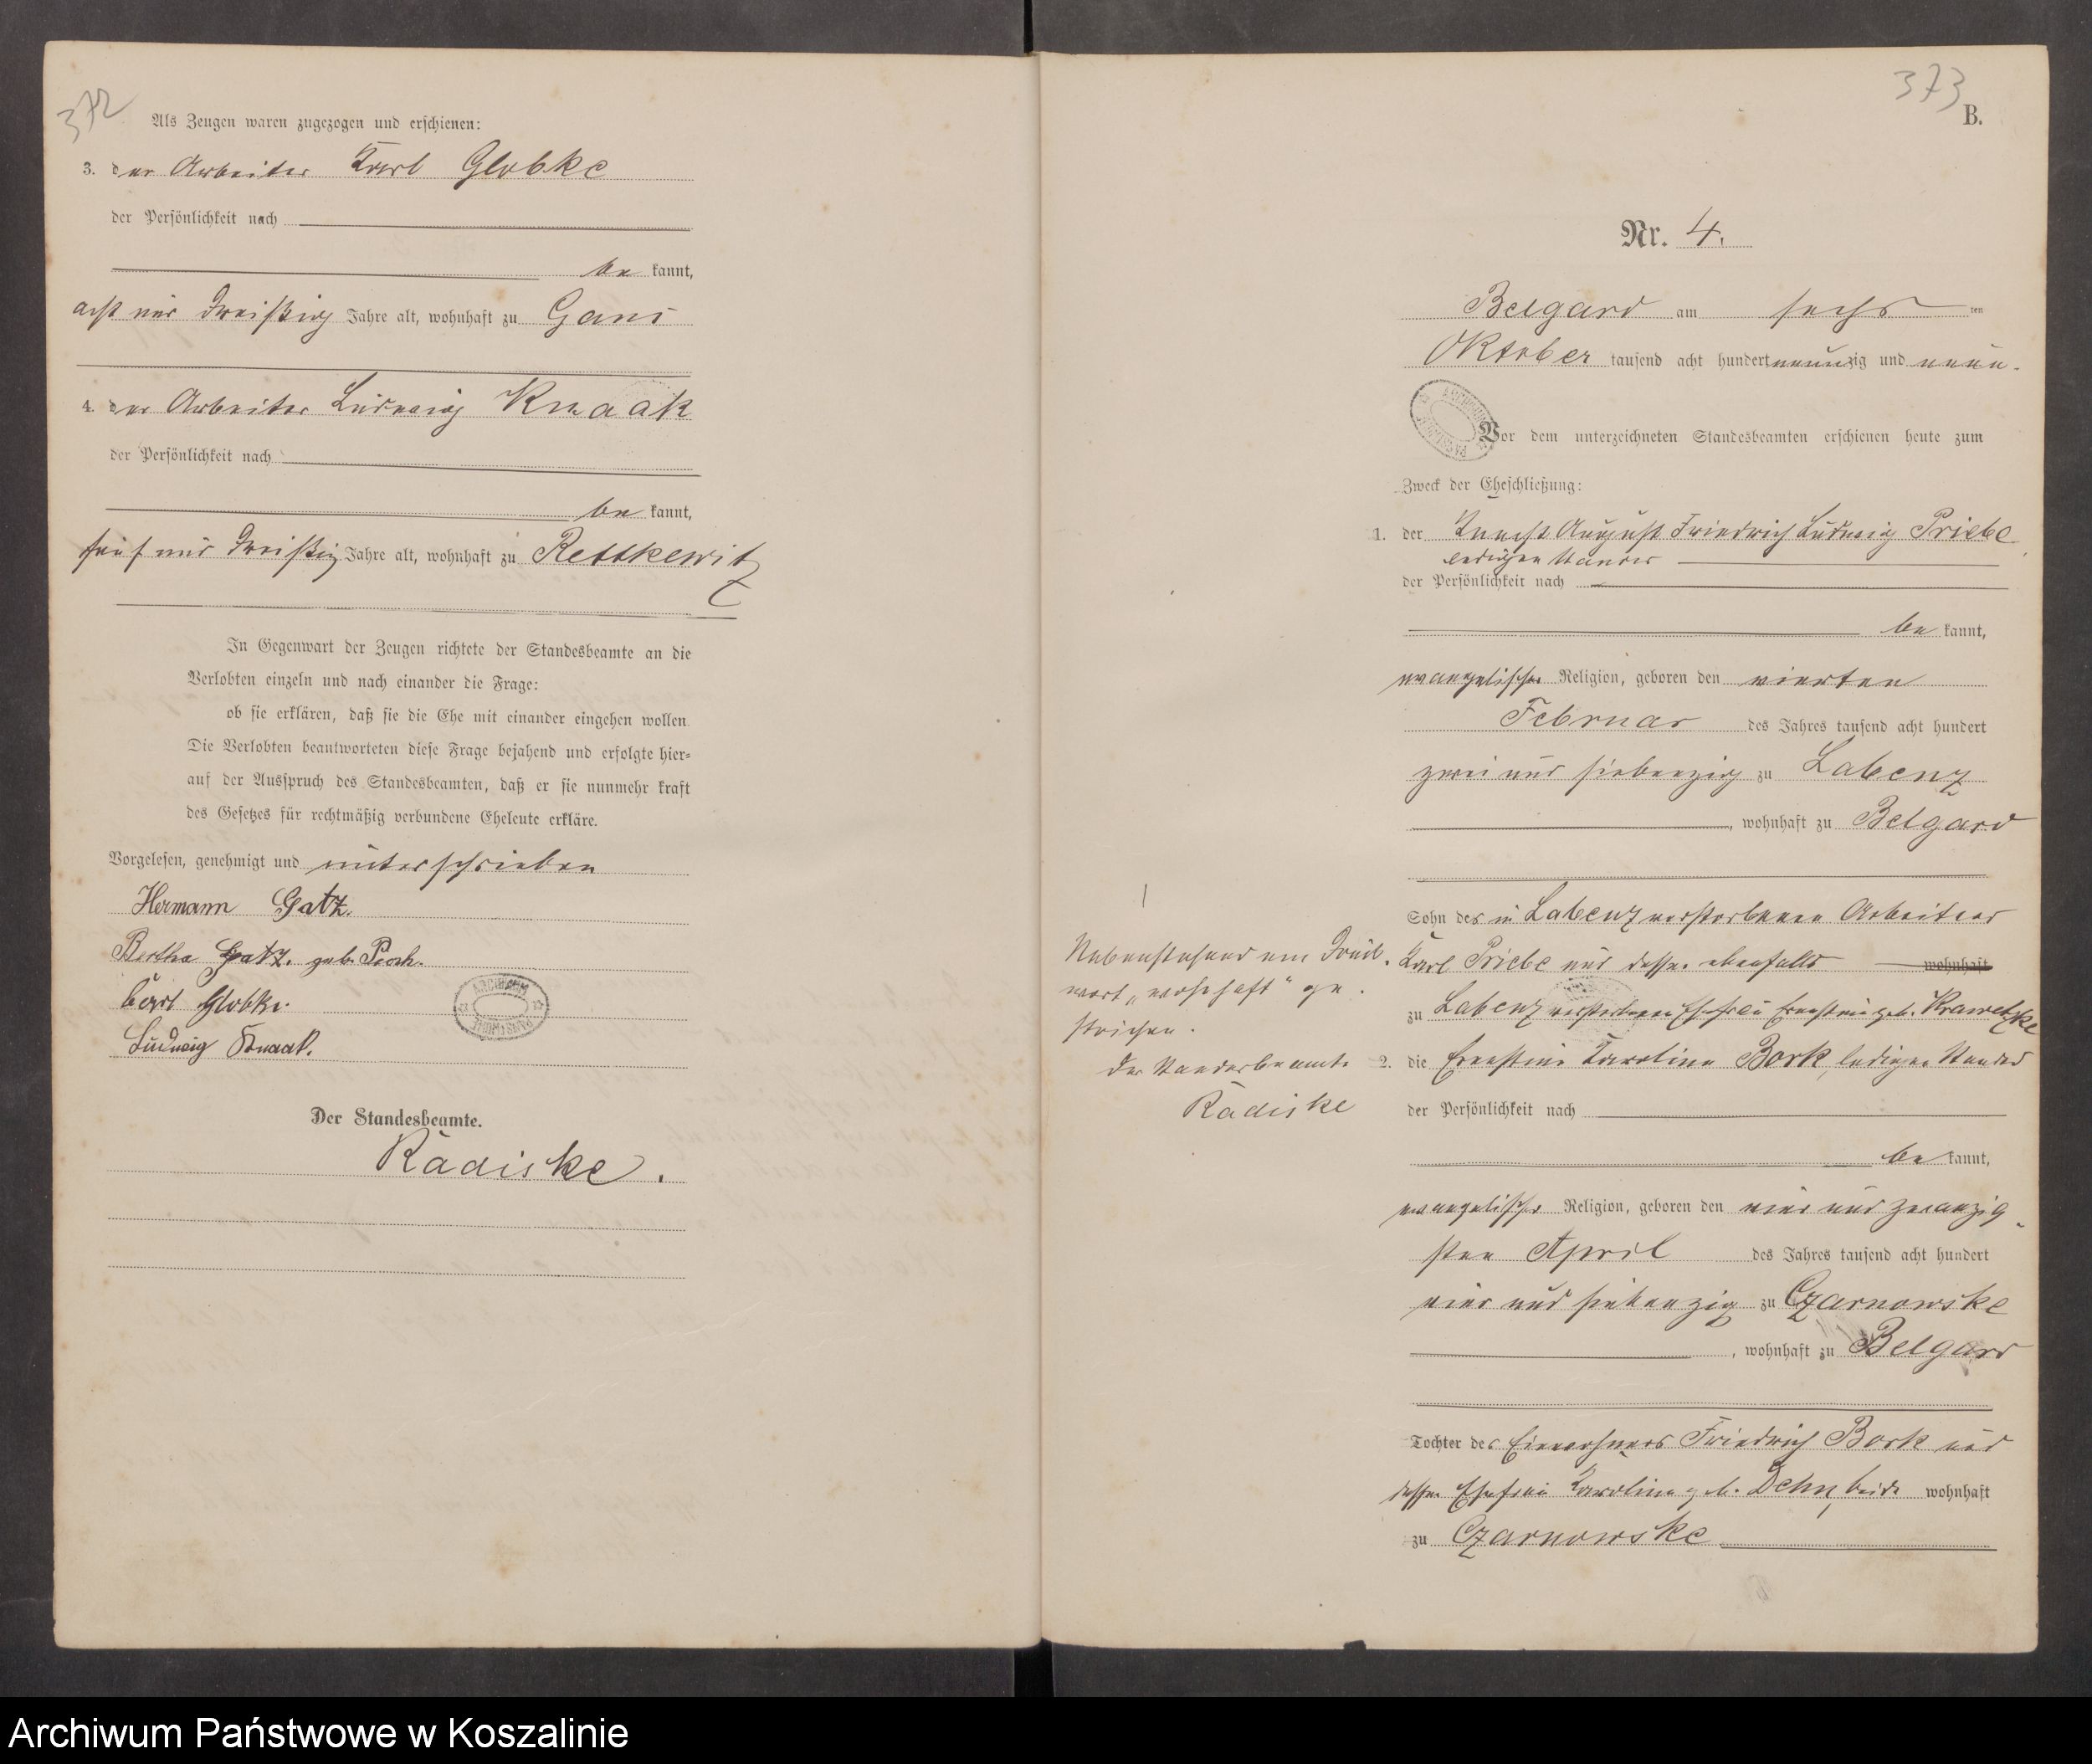 372
Als Zeugen waren zugezogen und erschienen:
3. der Arbeiter Karl Globke
der Persönlichkeit nach
be kannt,
acht und dreißig Jahre alt, wohnhaft zu Gans
4. der Arbeiter Ludwig Knaak
der Persönlichkeit nach
be kannt,
fünf und dreißig Jahre alt, wohnhaft zu Rettkewitz
In Gegenwart der Zeugen richtete der Standesbeamte an die
Verlobten einzeln und nach einander die Frage:
ob sie erklären, daß sie die Ehe mit einander eingehen wollen.
Die Verlobten beantworteten diese Frage bejahend und erfolgte hier-
auf der Ausspruch des Standesbeamten, daß er sie nunmehr kraft
des Gesetzes für rechtmäßig verbundene Eheleute erkläre.
Vorgelesen, genehmigt und unterschrieben
Hermann Gatz.
Bertha Gatz. geb.
Carl Globke.
Ludwig Knaak.
Der Standesbeamte.
Radiske.
373
B.
Nr. 4.
Belgard am sechsten
Oktober tausend acht hundert neunzig und neun.
Vor dem unterzeichneten Standesbeamten erschienen heute zum
Zweck der Eheschließung:
1. der Knecht August Friedrich Ludwig Priebe
ledigen Standes
der Persönlichkeit nach
be kannt,
evangelischer Religion, geboren den vierten
Februar des Jahres tausend acht hundert
zwei und siebenzig zu Labenz
, wohnhaft zu Belgard
Sohn des in Labenz verstorbenen Arbeiters
Karl Priebe und dessen ebenfalls wohnhaft
zu Labenz verstorbenen Ehefrau Ernestine geb. Krawetzke
Nebenstehend ein Druck-
wort „wohnhaft“ ge-
strichen.
Der Standesbeamte
Radiske
2. die Ernestine Karoline Bork, ledigen Standes
der Persönlichkeit nach
be kannt,
evangelischer Religion, geboren den vier und zwanzig-
sten April des Jahres tausend acht hundert
vier und siebenzig zu Czarnowske
, wohnhaft zu Belgard
Tochter des Einwohners Friedrich Bork und
dessen Ehefrau Karoline geb. Dehn, beide wohnhaft
zu Czarnowske
Archiwum Państwowe w Koszalinie